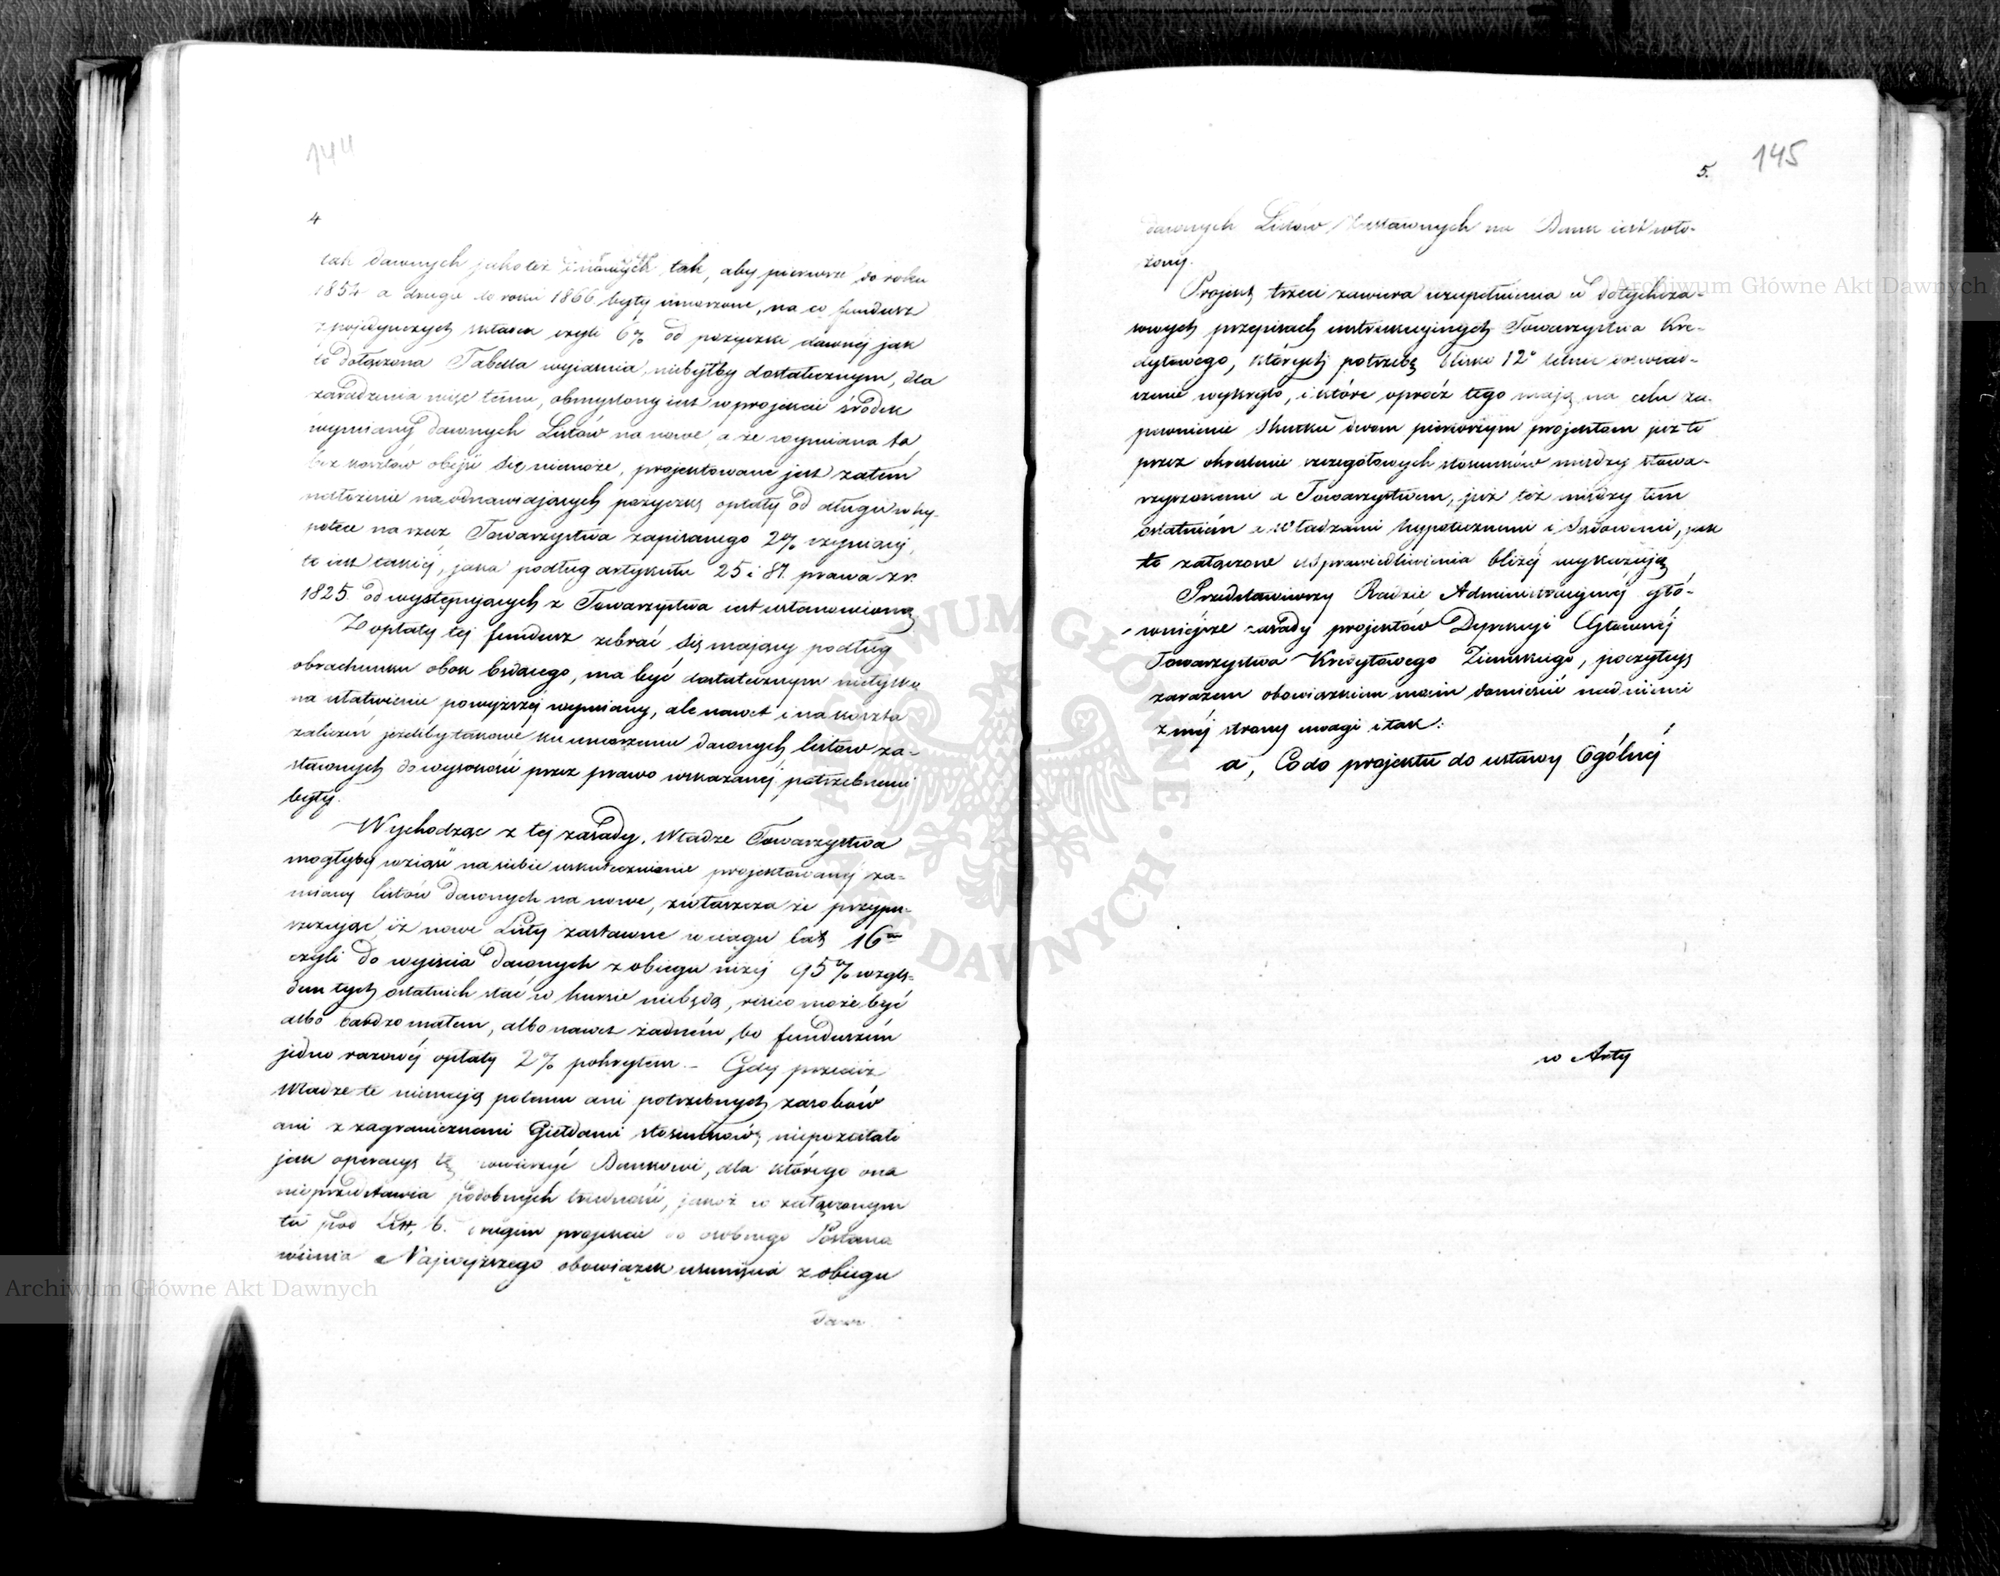 144
4
tak dawnych jako też i nowych tak, aby pierwsze do roku
1854 a drugie do roku 1866 były umorzone, na co fundusz
z pojedynczych składek czyli 6% od pożyczki dawnej jak
to dołączona Tabella wyjaśnia, niebyłby dostatecznym, dla
zaradzenia więc temu, obmyślony jest w projekcie środek
wymiany dawnych Listów na nowe, a że wymiana ta
bez kosztów obejść się niemoże, projektowane jest zatem
nałożenie na odnawiających pożyczkę opłaty od długu w hy-
potece na rzecz Towarzystwa zapisanego 2% czyniącej,
to jest takiéj, jaka podług artykułu 25 i 87. prawa z r.
1825 od występujących z Towarzystwa jest ustanowioną
Z opłaty téj fundusz zebrać się mający podług
obrachunku obok będącego, ma być dostatecznym nietylko
na ułatwienie powyższej wymiany, ale nawet i na koszta
zaliczeń jeżeliby takowe ku umorzeniu dawnych listów za-
stawnych do wysokości przez prawo wskazanej potrzebnemi
były.
Wychodząc z téj zasady, Władze Towarzystwa
mogłyby wziąść na siebie uskutecznienie projektowanéj za-
miany listów dawnych na nowe, zwłaszcza że przypu-
szczając iż nowe Listy zastawne w ciągu lat 16
czyli do wyjścia dawnych z obiegu niżéj 95% wzglę-
dem tych ostatnich stać w kursie niebędą, resico może być
albo bardzo małem, albo nawet żadném, bo funduszem
jedno razowéj opłaty 2% pokrytem. – Gdy przecież
Władze te niemają potemu ani potrzebnych zasobów
ani z zagranicznemi Giełdami stosunków, niepozostało
jak operacyę tę powierzyć Bankowi, dla którego ona
nieprzedstawia podobnych trudności, jakoż w załączonym
tu pod Litt. b. drugim projekcie do osobnego Postano
wienia Najwyższego obowiązek usunięcia z obiegu
dawn
145
5.
dawnych Listów Zastawnych na Bank jest wło-
żony.
Projekt trzeci zawiera uzupełnienia w dotychcza-
sowych przepisach instrukcyjnych Towarzystwa Kre-
dytowego, których potrzebę blisko 12o letnie doświad-
czenie wykryło, i które oprócz tego mają na celu za-
pewnienie skutku dwom pierwszym projektom jużto
przez określenie szczegółowych stosunków między stowa-
rzyszonemi a Towarzystwem, już też między tém
ostatniém a Władzami hypotecznemi i Sądowemi, jak
to załączone usprawiedliwienia bliżéj wykazują
Przedstawiwszy Radzie Administracyjnej głó-
wniejsze zasady projektów Dyrekcyi Głównéj
Towarzystwa Kredytowego Ziemskiego, poczytuję
zarazem obowiązkiem moim zamieścić nad niemi
z méj strony uwagi i tak:
a, Co do projektu do ustawy Ogólnéj
w Arty
Archiwum Główne Akt Dawnych
Archiwum Główne Akt Dawnych
ARCHIWUM GŁÓWNE AKT DAWNYCH